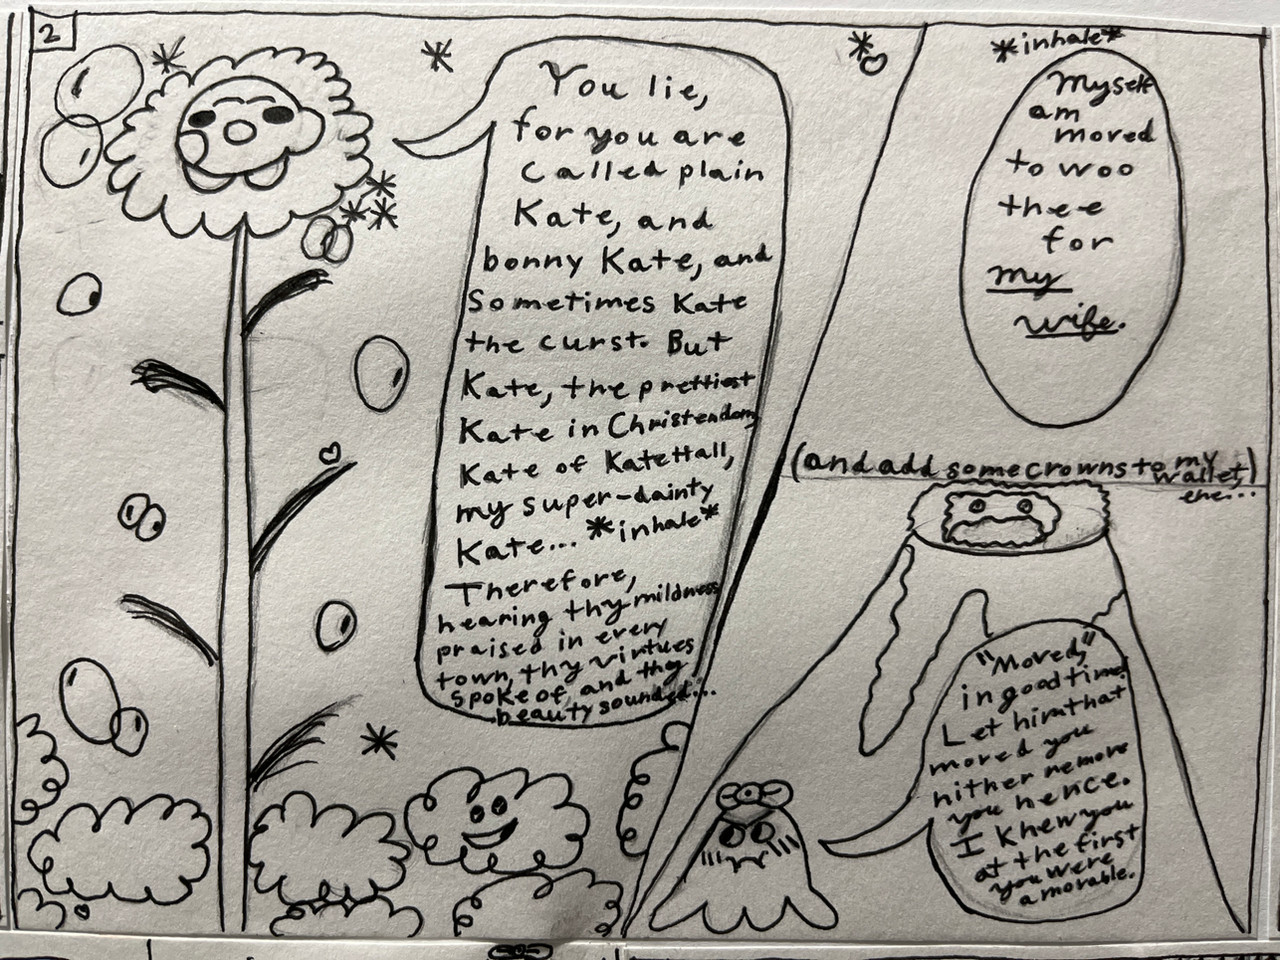 2
You lie,
for you are
called plain
Kate, and
bonny Kate, and
Sometimes Kate
the curst. But
Kate, the prettiest
Kate in Christendom,
Kate of Kate Hall,
my super-dainty
Kate... *inhale*
Therefore,
hearing thy mildness
praised in every
town, thy virtues
spoke of, and thy
beauty sounded...
*inhale*
Myself
am
moved
to woo
thee
for
my
wife.
(and add some crowns to my
wallet)
ehe...
"Moved,"
in good time!
Let him that
moved you
hither remove
you hence.
I knew you
at the first
you were
a movable.